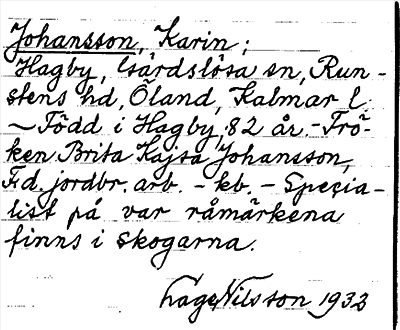 Johansson, Karin;
Hagby, Gärdslösa sn, Run-
stens hd, Öland, Kalmar l.
— Född i Hagby, 82 år. - Frö-
ken Brita Kajsa Johansson,
Fd. jordbr. arb. - kb. - Specia-
list på var råmärkena
finns i skogarna.
Lage Nilsson 1933